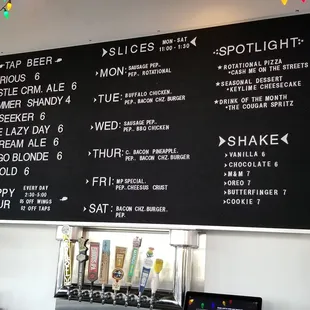 TAP BEER
RIOUS 6
STLE CRM. ALE 6
MMER SHANDY 4
SEEKER 6
E LAZY DAY 6
REAM ALE 6
GO BLONDE 6
OLD 6
PPY
UR
EVERY DAY
2:30-5:00
$5 OFF WINGS
$2 OFF TAPS
SLICES
MON-SAT
11:00 - 1:30
MON: SAUSAGE PEP.
PEP. ROTATIONAL
TUE: BUFFALO CHICKEN.
PEP. BACON CHZ. BURGER
WED: SAUSAGE PEP.
PEP. BBQ CHICKEN
THUR: C. BACON PINEAPPLE.
PEP. BACON CHZ. BURGER
FRI: MP SPECIAL.
PEP. CHEESUS CRUST
SAT: BACON CHZ. BURGER.
PEP.
SPOTLIGHT
ROTATIONAL PIZZA
*CASH ME ON THE STREETS
SEASONAL DESSERT
*KEYLIME CHEESECAKE
DRINK OF THE MONTH
*THE COUGAR SPRITZ
SHAKE
VANILLA 6
CHOCOLATE 6
M&M 7
OREO 7
BUTTERFINGER 7
COOKIE 7